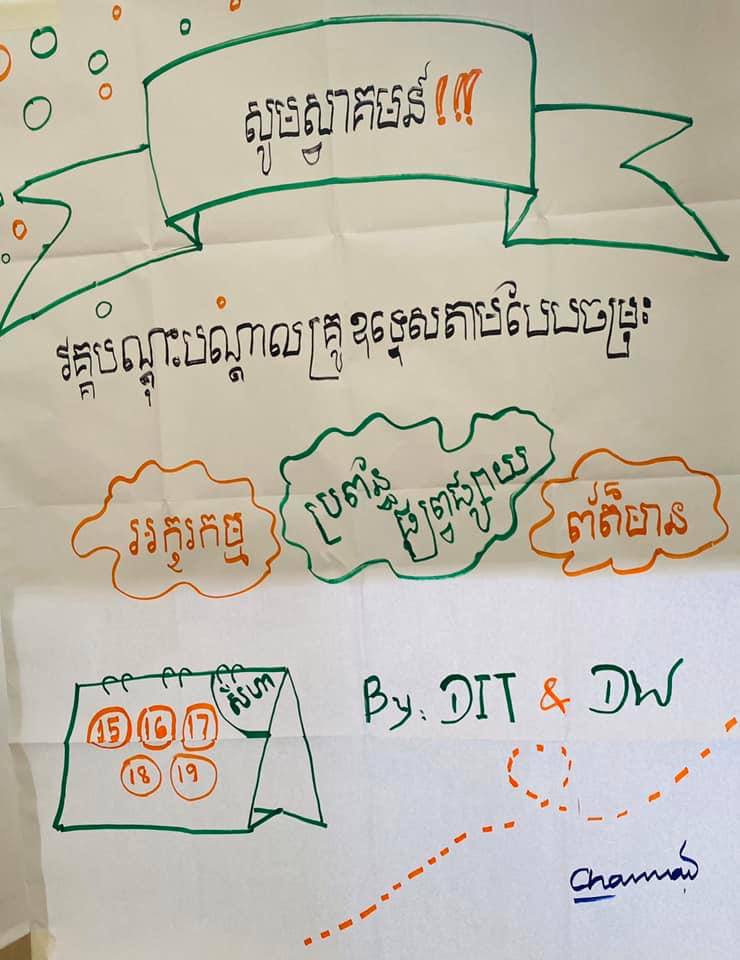 សូមស្វាគមន៍!!!
វគ្គបំណ្តុះបណ្តាំលគ្រូឧទ្ទេសតាមបែបចម្រុះ
អក្ខរកម្ម
ប្រព័ន្ធ
ផ្សព្វផ្សាយ
ព័ត៌មាន
សីហា
15 16 17
18 19
By: DIT & DW